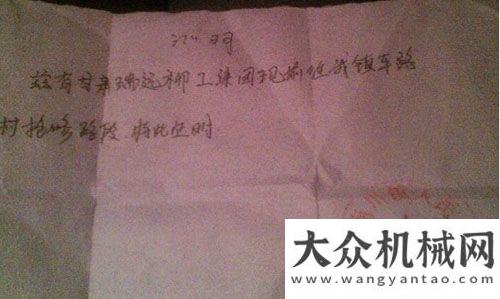 证明
兹有甘肃瑞远柳工集团现前往我镇车路
村抢修路段 特此证明.
大众机械网
www.wangyantao.com